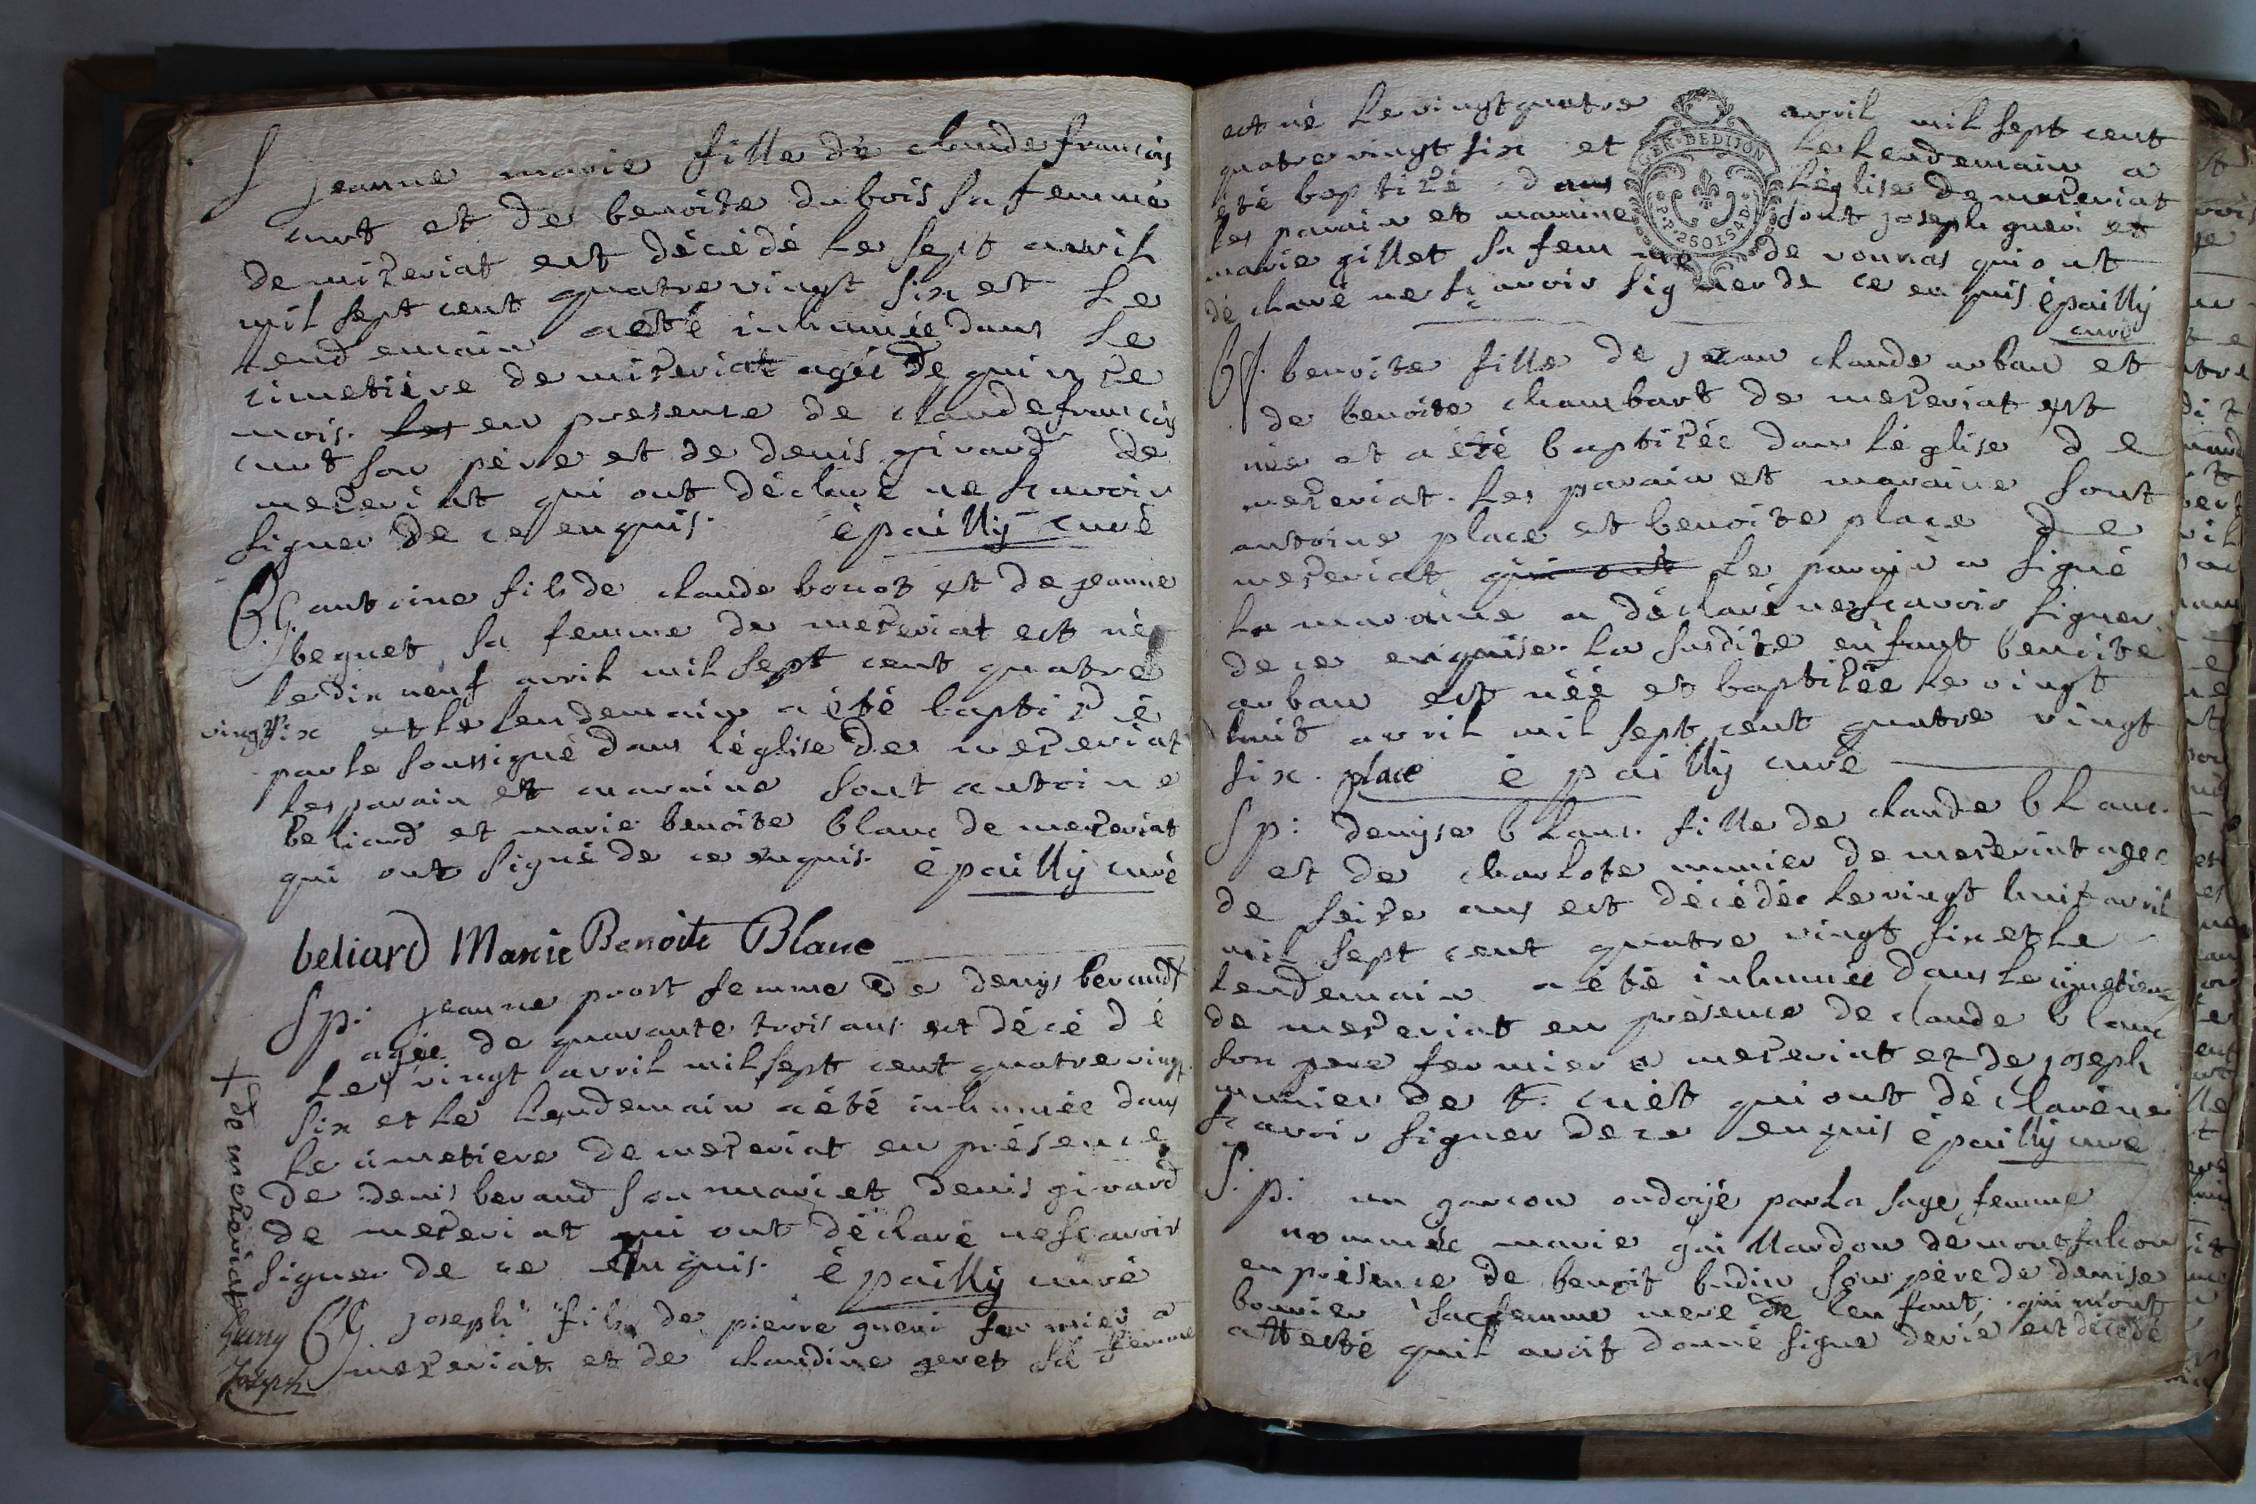 S jeanne marie fille de claude francois
curt et de benoite dubois sa femme
de miseriat est décédé le sept avril
mil sept cent quatre vingt six et le
lendemain a été inhumée dans le
cimetière de miseriat agée de quinze
mois. les en presence de claude francois
curt son père et de denis girard de
meseriat qui ont déclaré ne scavoir
signer de ce enquis. épailly curé
Bt. antoine fils de claude bonot et de jeanne
beguet sa femme de meseriat est né
le dix neuf avril mil sept cent quatre
vingt six et le lendemain a été baptisé
par le soussigné dans léglise de meseriat
les parain et maraine sont antoine
beliard et marie benoite blanc de meseriat
qui ont signé de ce enquis. épailly curé
beliard Marie Benoite Blanc
Sp: jeanne prost femme de denys beraud +
agée de quarante trois ans est décédé
le vingt avril mil sept cent quatre vingt
six et le lendemain a été inhumée dans
le cimetiere de meseriat en présence
de denis beraud son mari et denis girard
de meseriat qui ont déclaré ne scavoir
signer de ce enquis. épailly curé
+ de meseriat
Bt joseph fils de pierre gueri fermier a
meseriat et de claudine geret sa femme
Joseph
est né le vingt quatre avril mil sept cent
quatre vingt six et le lendemain a
été baptisé dans léglise de meseriat
les parain et maraine sont joseph gueri et
marie gillet sa femme de vonnas qui ont
déclaré ne scavoir signer de ce enquis épailly
curé
GEN. BEDIJON
Bt. benoite fille de jean claude arban et
de benoite chambart de meseriat est
née et a été baptisée dans léglise de
meseriat. les parain et maraine sont
antoine place et benoite place de
meseriat qui ont le parain a signé
la maraine a déclaré ne scavoir signer
de ce enquise. la susdite enfant benoite
arban est née et baptisée le vingt
huit avril mil sept cent quatre vingt
six. place épailly curé
Sp: denyse blanc. fille de claude blanc.
et de charlote munier de meseriat agée
de seize ans est décédée le vingt huit avril
mil sept cent quatre vingt six et le
lendemain a été inhumée dans le cimetiere
de meseriat en présence de claude blanc
son pere fermier a meseriat et de joseph
munier de st. cuët qui ont déclaré ne
scavoir signer de ce enquis épailly curé
S. p: un garcon ondoyé par la sage femme
nommée marie gaillardon de montfalcon
en présence de benoit budin son père de denise
bouvier sa femme mere de lenfant, qui m'ont
attesté quil avoit donné signe de vie est décédé